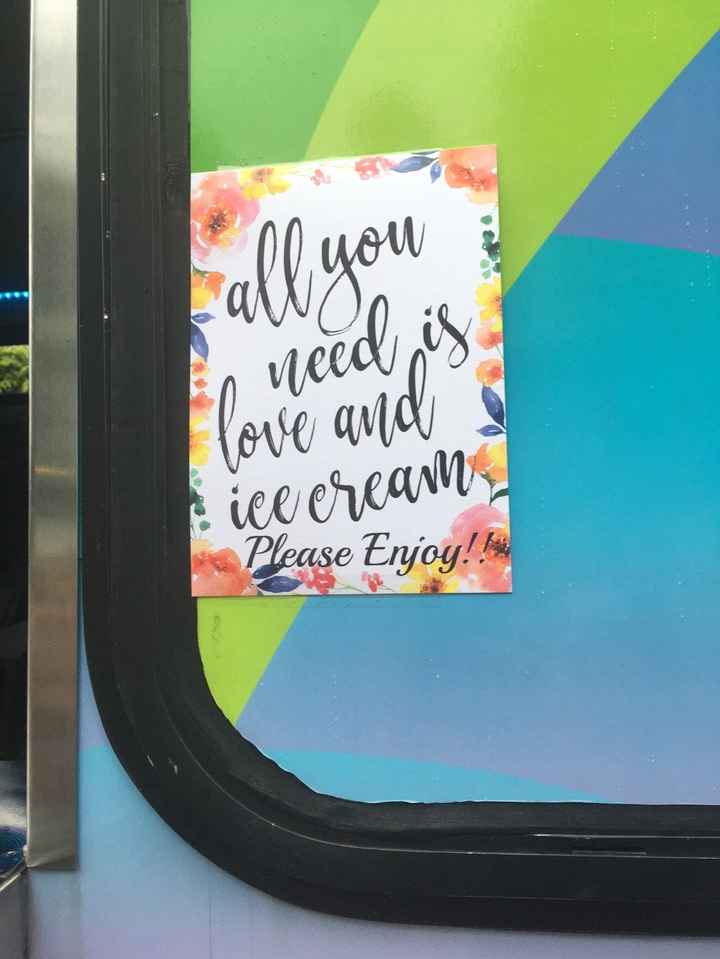 all you
need is
love and
ice cream
Please Enjoy!!